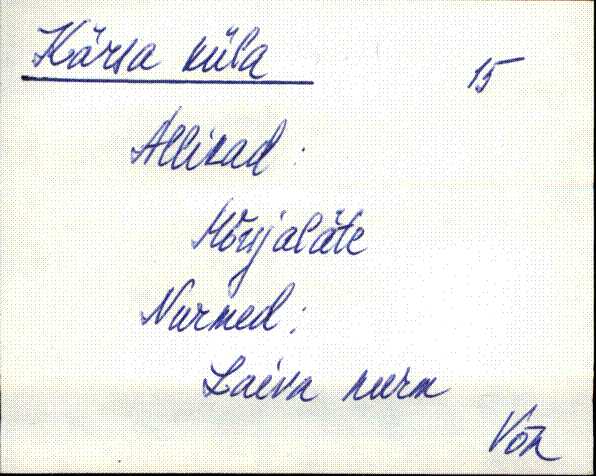 Kärsa küla
15
Allikad:
Mõrsjaläte
Nurmed:
Laiva nurm
Võn